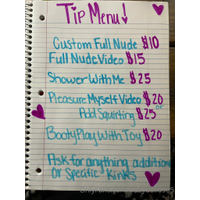 Tip Menu↓
Custom Full Nude $10
Full Nude Video $15
Shower With Me $25
Pleasure Myself Video $20
or
Add Squirting $25
Booty Play With Toy $20
Ask for anything additional
Or Specific Kinks